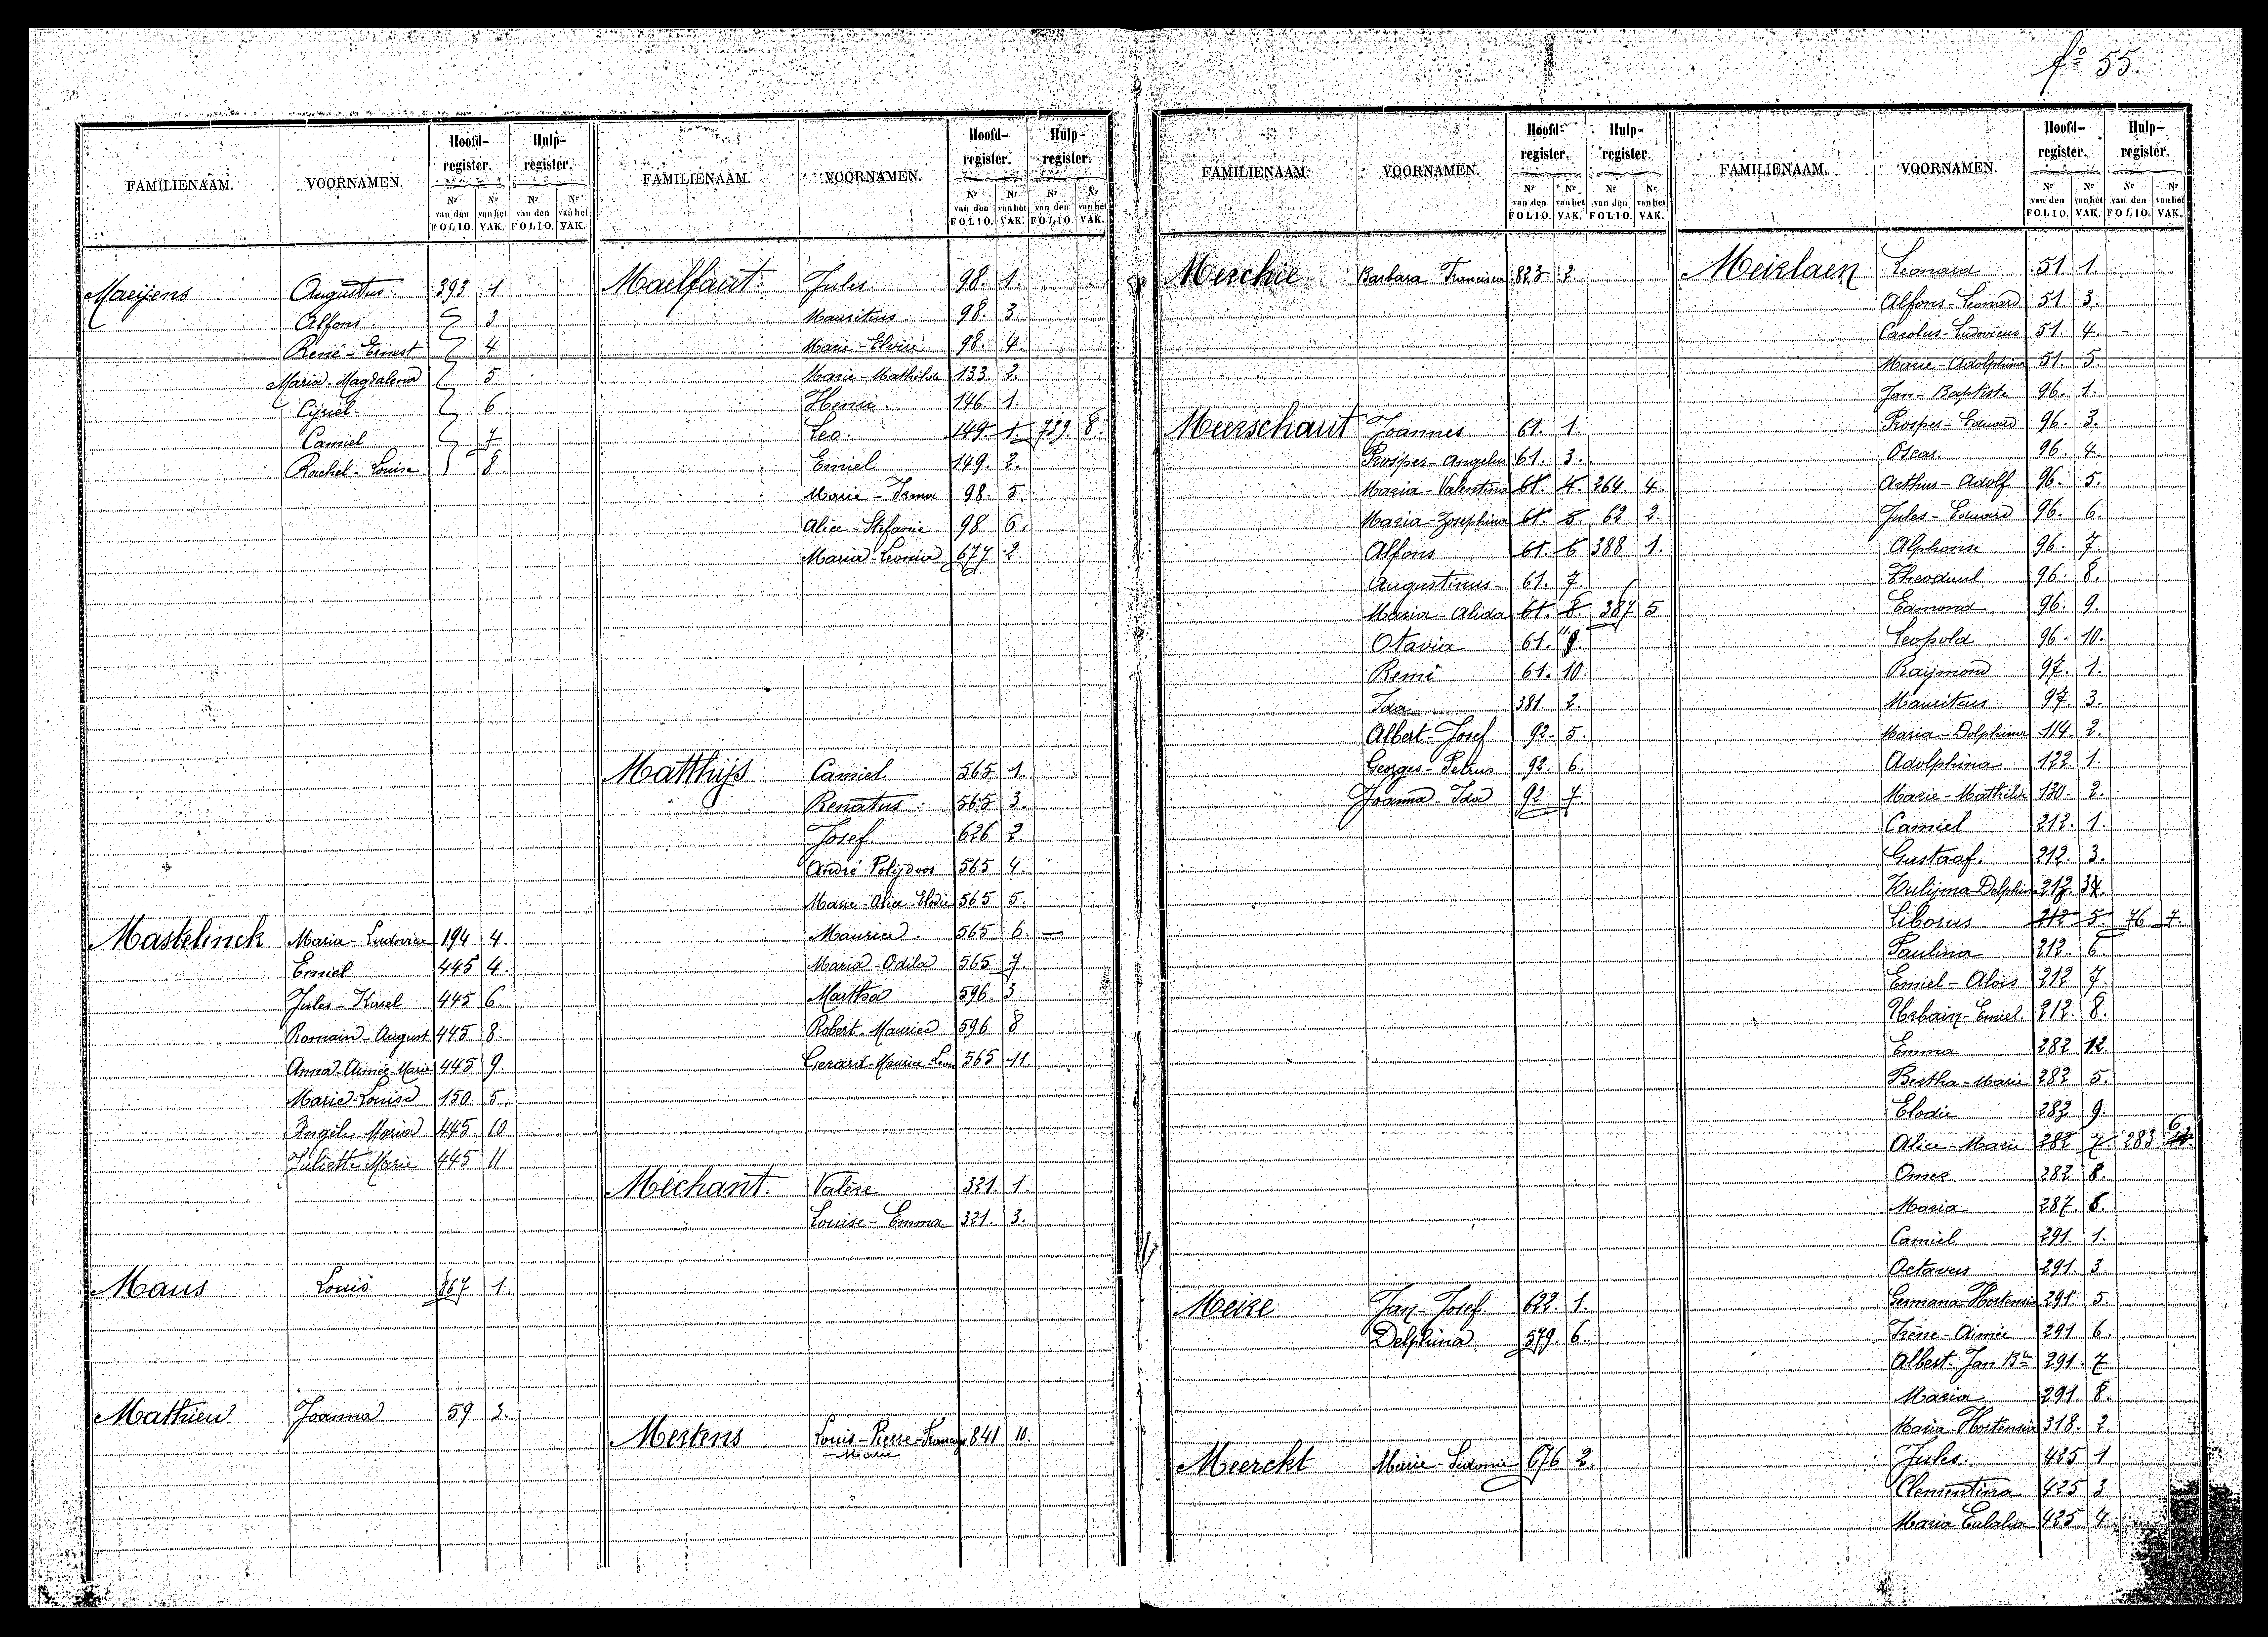 fº 55.
FAMILIENAAM. VOORNAMEN. Hoofd-register. Hulp-register.
Nr van den FOLIO. Nr van het VAK. Nr van den FOLIO. Nr van het VAK.
Maeijens Augustus. 393 1
Alfons. 3
René-Ernest 4
Maria-Magdalena 5
Cyriel 6
Camiel 7
Rachel-Louise 8.
Mastelinck Maria-Ludovica 194 4.
Emiel 445 4.
Jules-Karel 445 6
Romain-August 445 8.
Anna-Aimée-Marie 445 9.
Marie-Louise 150 5.
Angèle-Maria 445 10
Juliette Marie 445 11
Maus Louis 867 1.
Mathieu Joanna 59 3.
FAMILIENAAM. VOORNAMEN. Hoofd-register. Hulp-register.
Nr van den FOLIO. Nr van het VAK. Nr van den FOLIO. Nr van het VAK.
Maelfait Jules. 98. 1.
Mauritus. 98. 3
Marie-Elvire 98. 4.
Marie-Mathilde 133. 2.
Henri. 146. 1.
Leo. 149 1. 739. 8.
Emiel 149. 2.
Marie-Irma 98. 5
Alice-Stefanie 98 6.
Maria-Leonia 677 2.
Matthijs Camiel 565 1.
Renatus 565 3.
Josef. 626 2.
André Polijdoor 565 4.
Marie-Alice-Elodie 565 5.
Maurice 565 6. —
Maria-Odila 565 7.
Martha 596. 3.
Robert-Maurice 596 8
Gerard-Maurice-Leon 565 11.
Méchant. Valère 321. 1.
Louise-Emma 321. 3.
Mertens Louis-Pierre-François 841 10.
-Marie
FAMILIENAAM. VOORNAMEN. Hoofd-register. Hulp-register.
Nr van den FOLIO. Nr van het VAK. Nr van den FOLIO. Nr van het VAK.
Merchie Barbara Francisca 823 2.
Meerschaut Joannes 61. 1.
Prosper-Angelus 61. 3.
Maria-Valentina 61. 4. 264 4.
Maria-Josephina 61. 5. 62 2.
Alfons 61. 6 388 1.
Augustinus- 61. 7.
Maria-Alida 61. 8. 387 5
Otavia 61. 9.
Remi 61. 10.
Ida 381. 2.
Albert-Josef 92. 5.
Georges-Petrus 92. 6.
Joanna-Ida 92 7.
Meire Jan-Josef. 622. 1.
Delphina 579. 6.
Meerckt Marie-Sidonie 676 2.
FAMILIENAAM. VOORNAMEN. Hoofd-register. Hulp-register.
Nr van den FOLIO. Nr van het VAK. Nr van den FOLIO. Nr van het VAK.
Meirlaen Leonard 51 1.
Alfons-Leonard 51 3.
Carolus-Ludovicus 51. 4.
Marie-Adolphina 51. 5.
Jan-Baptiste 96. 1.
Prosper-Eduard 96. 3.
Oscar. 96. 4.
Arthur-Adolf 96. 5.
Jules-Eduard 96. 6.
Alphonse 96. 7.
Theoduul 96. 8.
Edmond 96. 9.
Leopold 96. 10.
Raymond 97. 1.
Mauritus 97. 3.
Maria-Dolphina 114. 2.
Adolphina 122. 1.
Marie-Mathilde 130. 2.
Camiel 212. 1.
Gustaaf. 212. 3.
Zulijma-Delphina 212. 4.
Liborus 212 5 76 7.
Paulina 212. 6.
Emiel-Aloïs 212 7.
Urbain-Emiel. 212. 8.
Emma 282 2.
Bertha-Marie 282 5.
Elodie 282 9.
Alice-Marie 282 7 283 6
Omer 282 8.
Maria 287. 6.
Camiel 291. 1.
Octavus 291. 3.
Germana-Hortensia 291 5.
Irène-Aimée 291 6.
Albert-Jan Bte 291. 7
Maria 291. 8.
Maria-Hortensia 318. 2.
Jules. 425 1
Clementina 425 3
Maria Eulalia 425 4